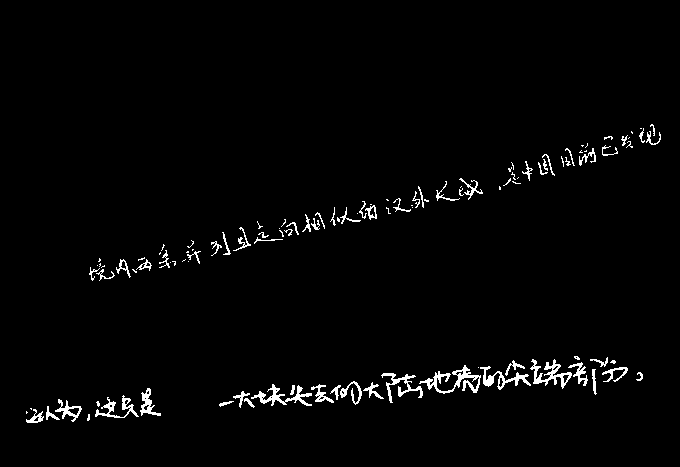 境内两条并列且走向相似的汉外长城，是中国目前已发现
认为，这只是 一大块失去的大陆地壳的尖端部分。